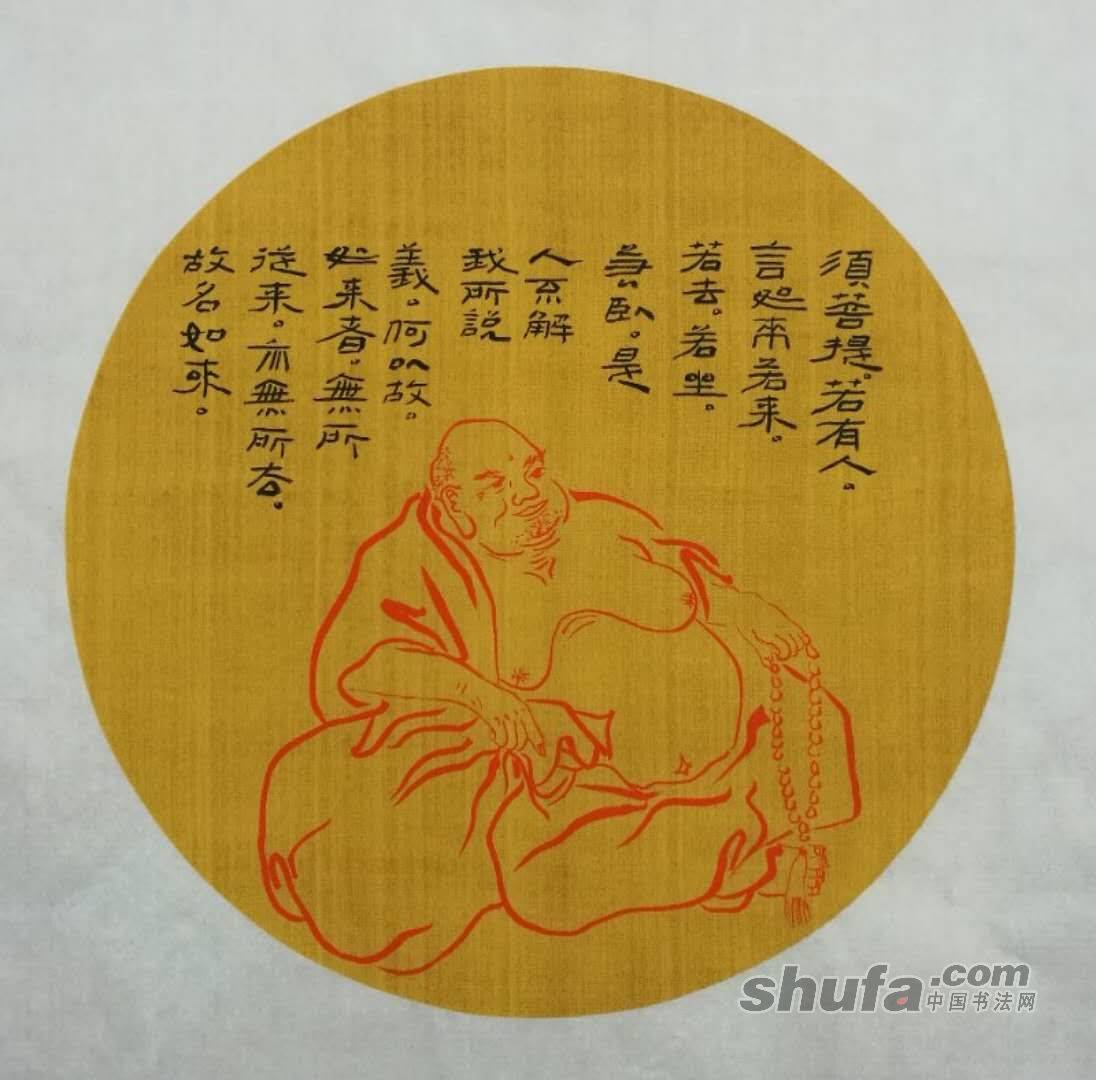 須菩提。若有人。
言如来若来。
若去。若坐。
臥。是
人不解
我所説
義。何以故。
如来者。無所
従来。亦無所去。
故名如来。
shufa.com
中国书法网